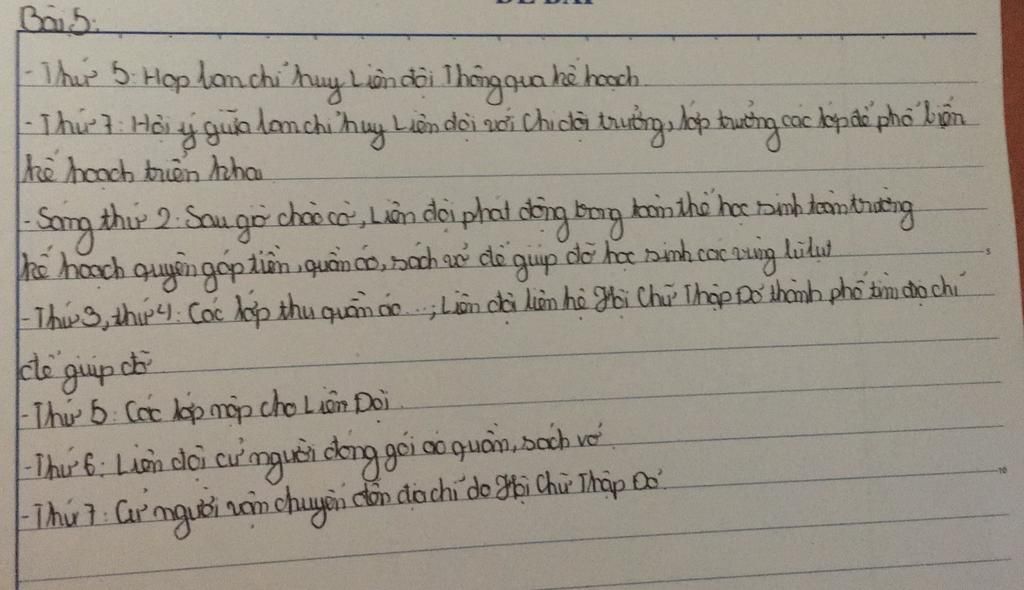 ĐỀ BÀI
Bài 5:
- Thứ 5: Họp ban chỉ huy Liên đội Thông qua kế hoạch
- Thứ 7: Hội ý giữa ban chỉ huy Liên đội với Chi đội trưởng, lớp trưởng các lớp để phổ biến
kế hoạch triển khai
- Sáng thứ 2: Sau giờ chào cờ, Liên đội phát động trong toàn thể học sinh toàn trường
kế hoạch quyên góp tiền, quần áo, sách vở để giúp đỡ học sinh các vùng lũ lụt
- Thứ 3, thứ 4: Các lớp thu quần áo...; Liên đội liên hệ Hội Chữ Thập Đỏ thành phố tìm địa chỉ
để giúp đỡ
- Thứ 5: Các lớp nộp cho Liên Đội.
- Thứ 6: Liên đội cử người đóng gói áo quần, sách vở
- Thứ 7: Cử người vận chuyển đến địa chỉ do Hội Chữ Thập Đỏ.